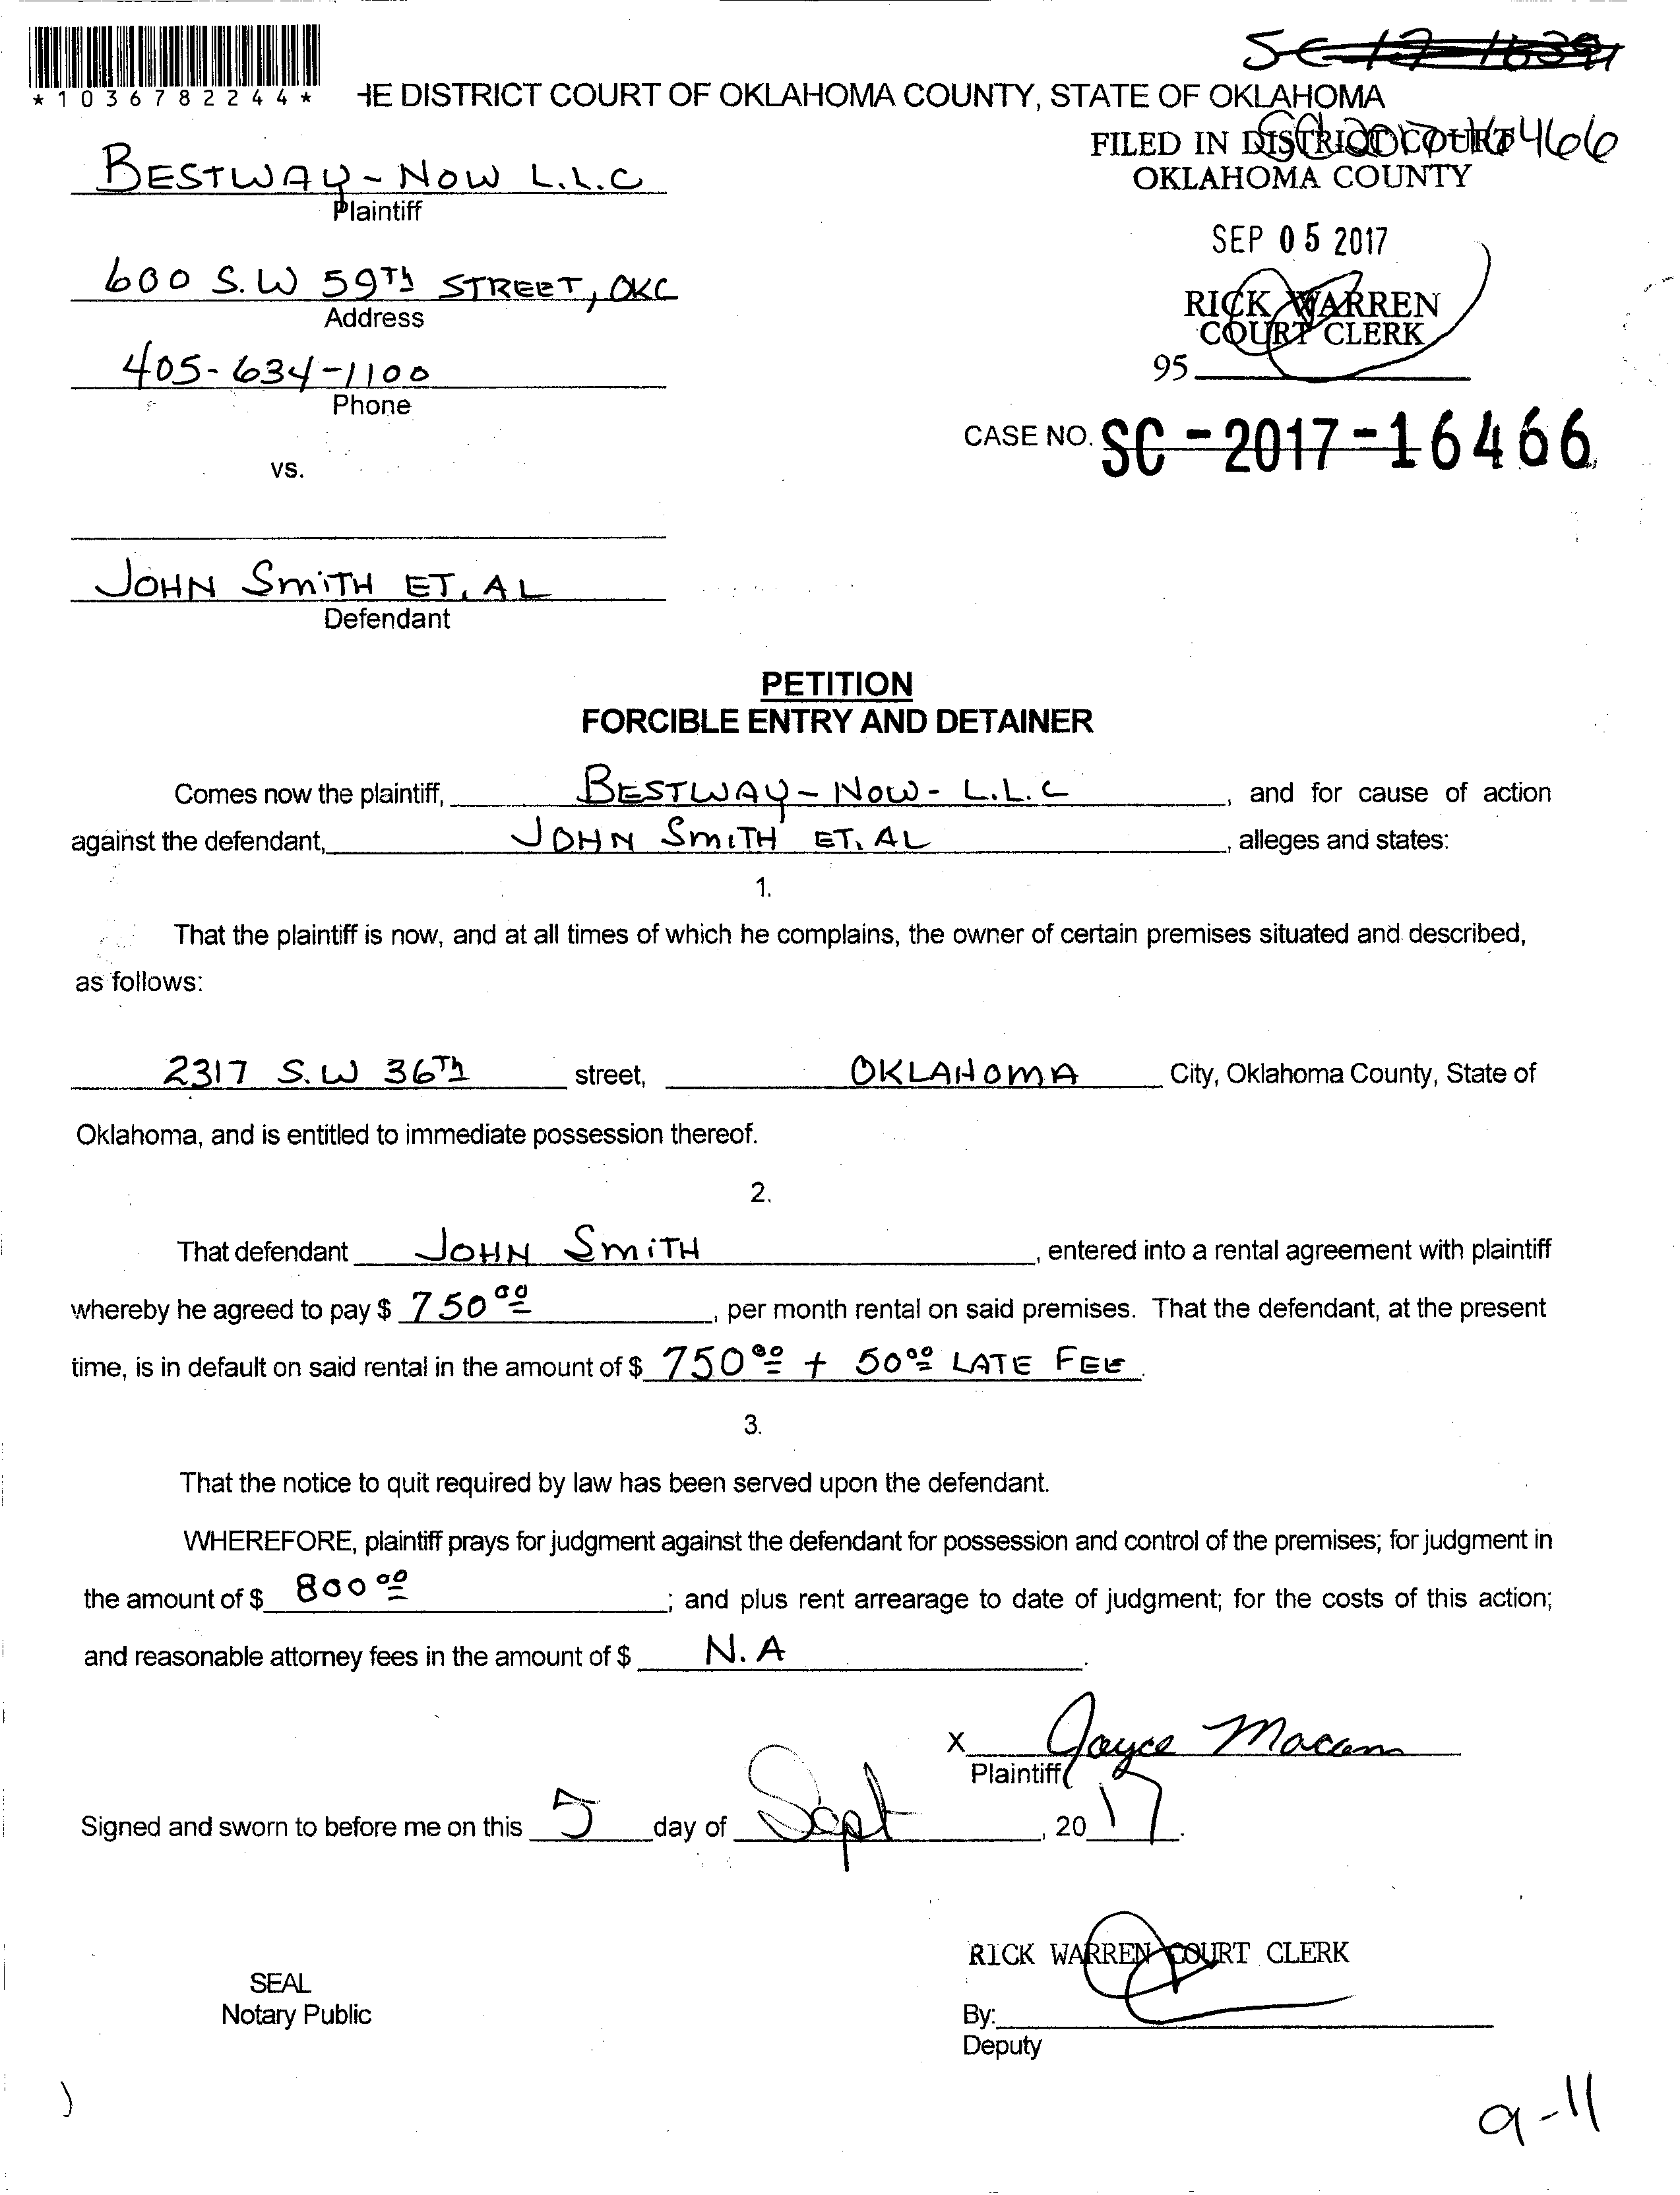 SC-17-16391
*1036782244*
HE DISTRICT COURT OF OKLAHOMA COUNTY, STATE OF OKLAHOMA
FILED IN DISTRICT COURT
OKLAHOMA COUNTY
BESTWAY-NOW L.L.C
Plaintiff
SEP 05 2017
600 S.W 59Th STREET, OKC
Address
RICK WARREN
COURT CLERK
405-634-1100
95
Phone
CASE NO. SC-2017-16466
vs.
JOHN SMITH ET. AL
Defendant
PETITION
FORCIBLE ENTRY AND DETAINER
Comes now the plaintiff, BESTWAY-NOW-L.L.C, and for cause of action
against the defendant, JOHN SMITH ET. AL, alleges and states:
1.
That the plaintiff is now, and at all times of which he complains, the owner of certain premises situated and described,
as follows:
2317 S.W 36Th street, OKLAHOMA City, Oklahoma County, State of
Oklahoma, and is entitled to immediate possession thereof.
2.
That defendant JOHN SMITH, entered into a rental agreement with plaintiff
whereby he agreed to pay $ 750 00, per month rental on said premises. That the defendant, at the present
time, is in default on said rental in the amount of $ 750 00 + 50 00 LATE FEE.
3.
That the notice to quit required by law has been served upon the defendant.
WHEREFORE, plaintiff prays for judgment against the defendant for possession and control of the premises; for judgment in
the amount of $ 800 00; and plus rent arrearage to date of judgment; for the costs of this action;
and reasonable attorney fees in the amount of $ N.A.
X Joyce
Plaintiff
Signed and sworn to before me on this 5 day of Sept, 2017.
RICK WARREN COURT CLERK
SEAL
Notary Public
By:
Deputy
9-11